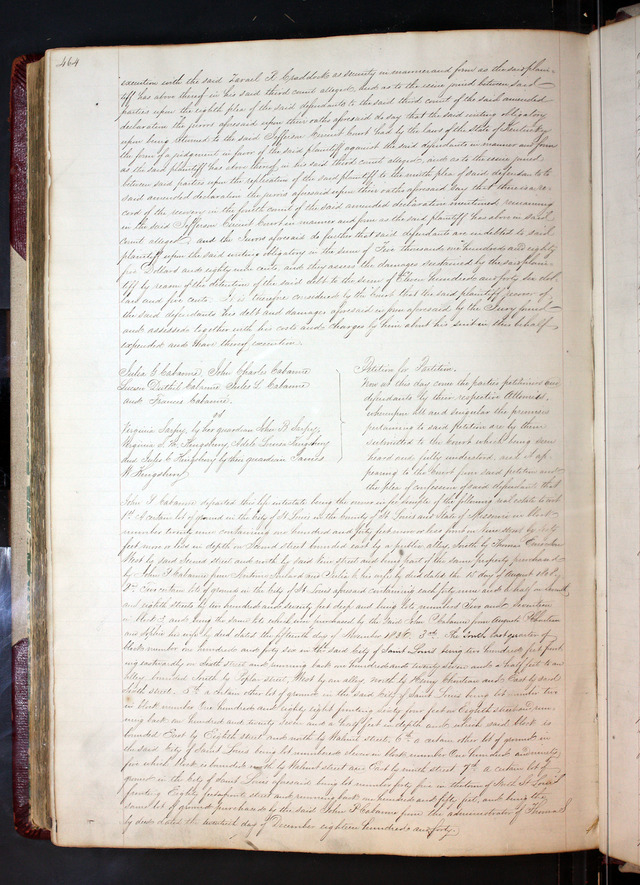 464
execution with the said Israel B Craddock as security in manner and form as the said plain-
tiff has above thereof in his said third count alleged. And as to the issue joined between said
parties upon the eighth plea of the said defendants to the said third count of the said amended
declaration the jurors aforesaid upon their oaths aforesaid do say that the said writing obligatory
upon being returned to the said Jefferson Circuit Court had by the laws of the State of Kentucky
the force of a judgement in favor of the said plaintiff against the said defendants in manner and form
as the said plaintiff has above thereof in his said third count alleged, and as to the issue joined
between said parties upon the replication of the said plaintiff to the ninth plea of said defendants to
said amended declaration the jurors aforesaid upon their oaths aforesaid say that there is a re-
cord of the recovery in the fourth count of the said amended declaration mentioned remaining
in the said Jefferson Circuit Court in manner and form as the said plaintiff has above in said
count alleged and the Jurors aforesaid do further that said defendants are indebted to said
plaintiff upon the said writing obligatory in the sum of Two thousand six hundred and eighty
five Dollars and eighty nine cents and they assess the damages sustained by the said plain-
tiff by reason of the detention of the said debt to the sum of Three hundred and forty six dol-
lars and five cents. It is therefore considered by the Court that the said plaintiff recover of
the said defendants his debt and damages aforesaid in form aforesaid by the Jury found
and assessed together with his costs and charges by him about his suit in this behalf
expended and have thereof execution.
Julia G Cabanne, John Charles Cabanne
Lucien Duthil Cabanne Jules L. Cabanne
and Francis Cabanne.
vs
Virginia Sarpy, by her guardian John B Sarpy,
Virginia L. H. Kingsbury Adele Louise Kingsbury
and Jules C Kingsbury by their guardian James
W Kingsbury
Petition for Partition.
Now at this day come the parties petitioners and
defendants by their respective Attornies,
whereupon all and singular the premises
pertaining to said petition are by them
submitted to the Court which being seen
heard and fully understood, and it ap-
pearing to the Court from said petition and
the plea of confession of said defendants that
John P Cabanne departed this life intestate being the owner in fee simple of the following real estate to wit
1st A certain lot of ground in the City of St Louis in the County of St Louis and State of Missouri in block
number twenty nine containing one hundred and fifty feet more or less front on second street by
feet more or less in depth on second street bounded east by a public alley, South by Thomas
West by said second street and north by said street and being part of the same property purchased
by John P Cabanne from and Julia C his wife by deed dated the 12 day of August 1818.
2nd Two certain lots of ground in the City of St Louis aforesaid containing each fifty nine and a half on Seventh
and eighth streets by two hundred and seventy feet deep and being lots numbered two and seventeen
in Block 3 and being the same lots which were purchased by the said John P Cabanne from Auguste P Chouteau
and Sophie his wife by deed dated the fifteenth day of December 1836. 3rd The South East quarter of
block number one hundred and forty six in the said City of Saint Louis being two hundred feet front
ing eastwardly on sixth street and running back one hundred and twenty seven and a half feet to an
alley bounded South by Poplar street, West by an alley north by Henry Chouteau and East by said
sixth street. 5th a certain other lot of ground in the said City of Saint Louis being lot number two
in block number one hundred and eighty eight fronting sixty four feet on Eighth street and run
ning back one hundred and twenty seven and a half feet in depth and which said block is
bounded East by Eighth street and north by Walnut streets, 6th a certain other lot of ground in
the said City of Saint Louis being lot numbered eleven in block number One hundred and ninety
five which block is bounded north by Walnut street and East by ninth street 7th a certain lot of
ground in the City of Saint Louis aforesaid being lot number forty five in Chateau's of said St Louis
fronting Eighty feet on front street and running back one hundred and fifty feet, and being the
same lot of ground purchased by the said John P Cabanne from the administrator of Thomas
by deed dated the twentieth day of December eighteen hundred and forty.